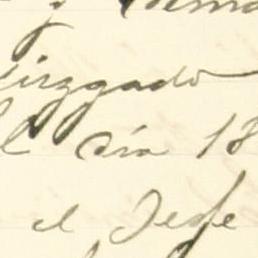 y
Juzgado
el día 18
el Jefe